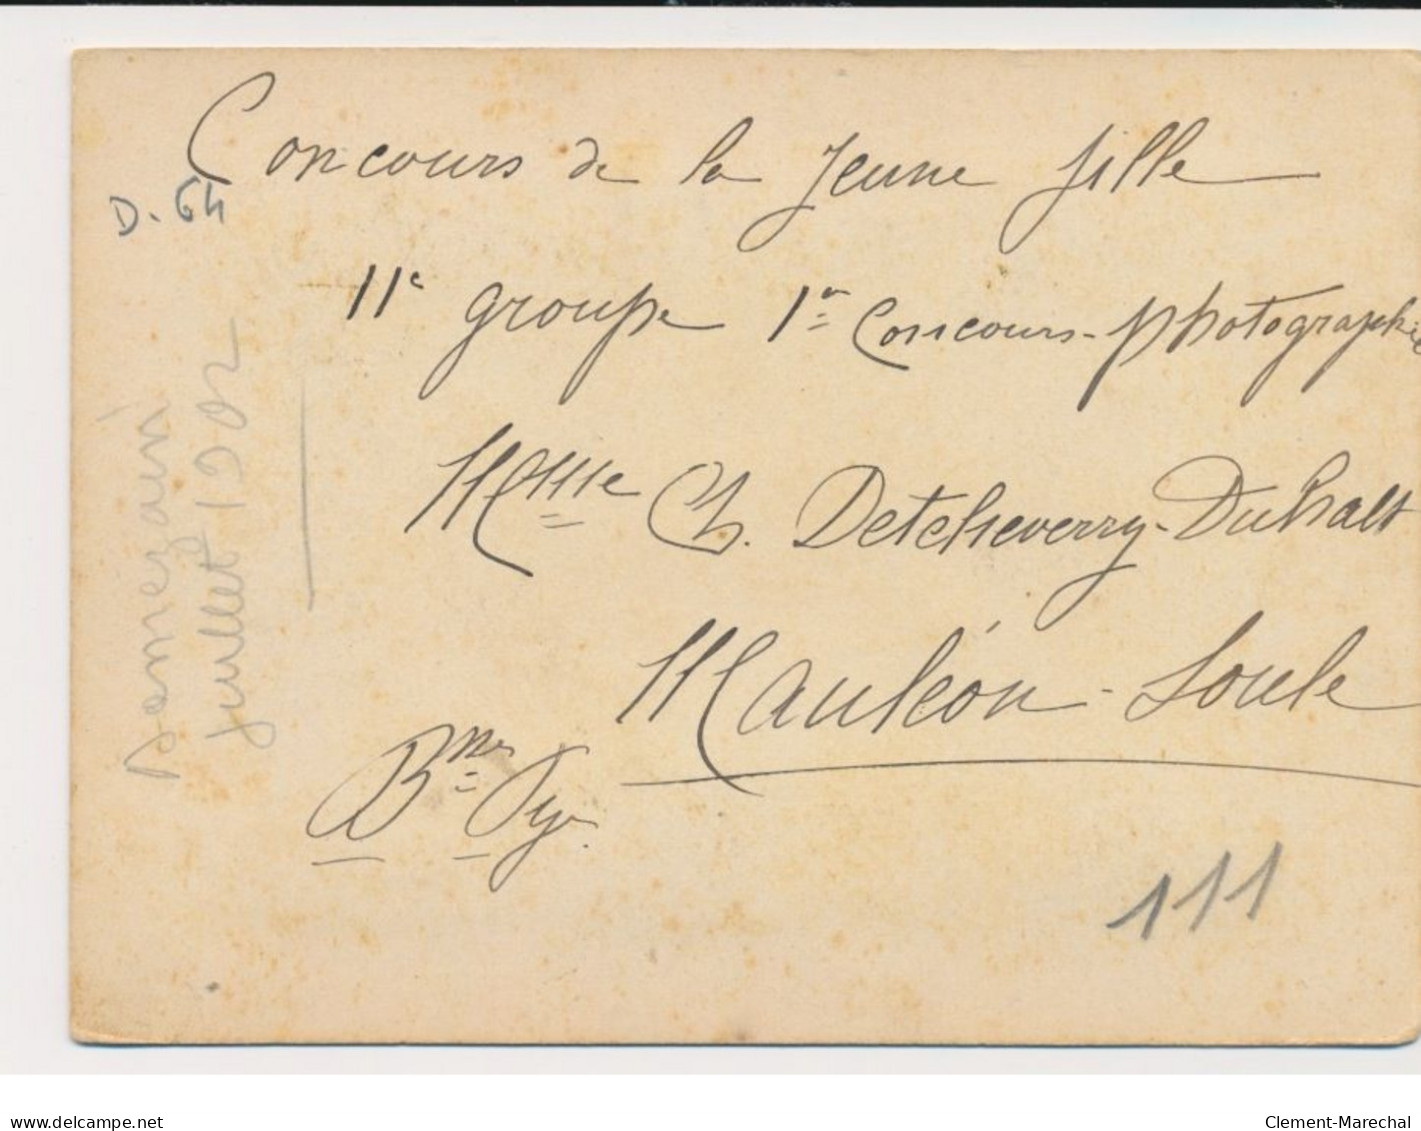 Concours de la Jeune fille
D. 64
11e groupe 1er Concours-photographie
Mme Ch. Detcheverry-Duhalt
Mauléon-Soule
Bses Pyr.
111
Domezain
juillet 1902
www.delcampe.net
Clement-Marechal